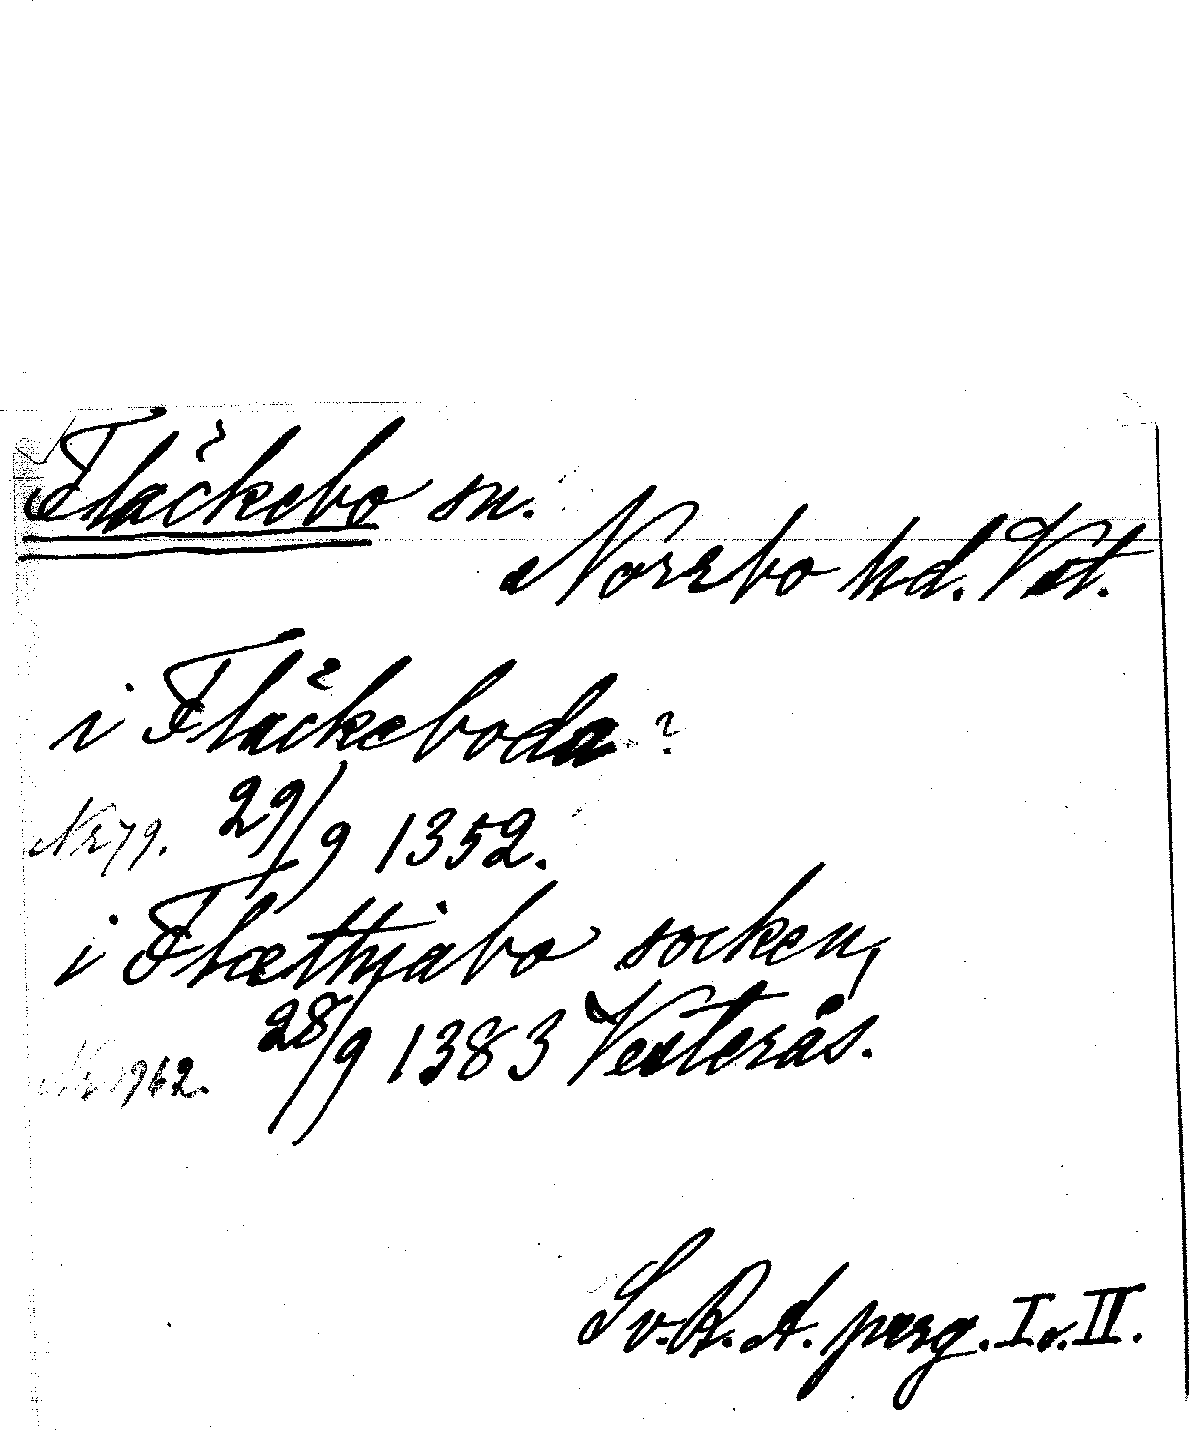 Fläckebo sn.
Norrbo hd. Vst.
i Fläckeboda?
Nr 79. 29/9 1352.
i Flæthiabo socken,
Nr 1962. 28/9 1383 Vesterås.
Sv. R. A. perg. I o. II.